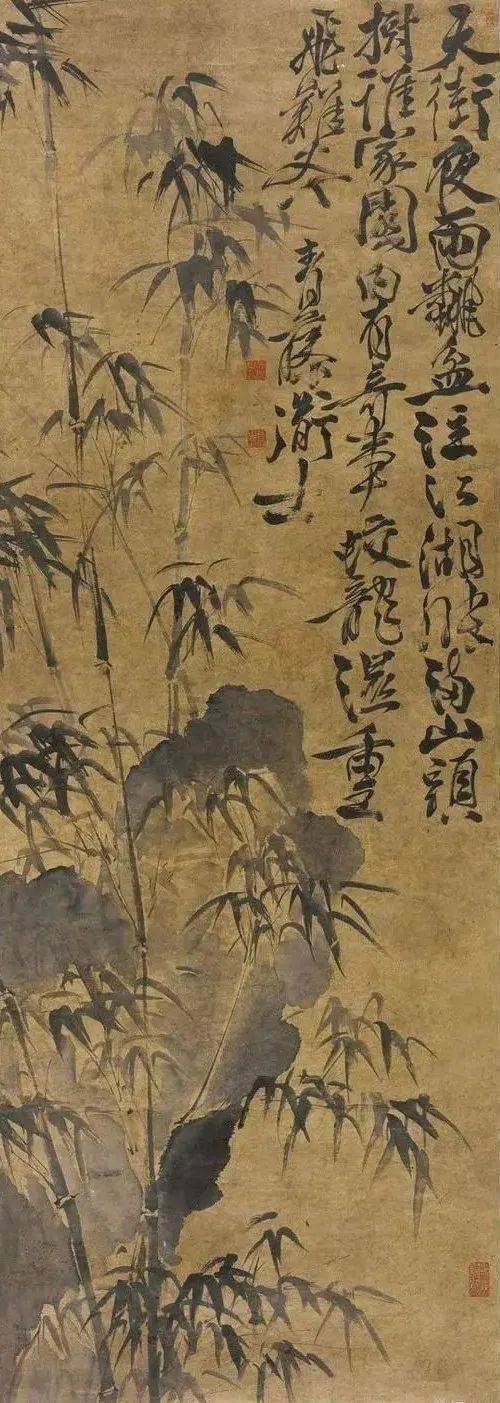 天街夜雨飜盆注江湖漲滿山頭
樹誰家園內有奇事蛟龍濕重
飛難去 青藤道士